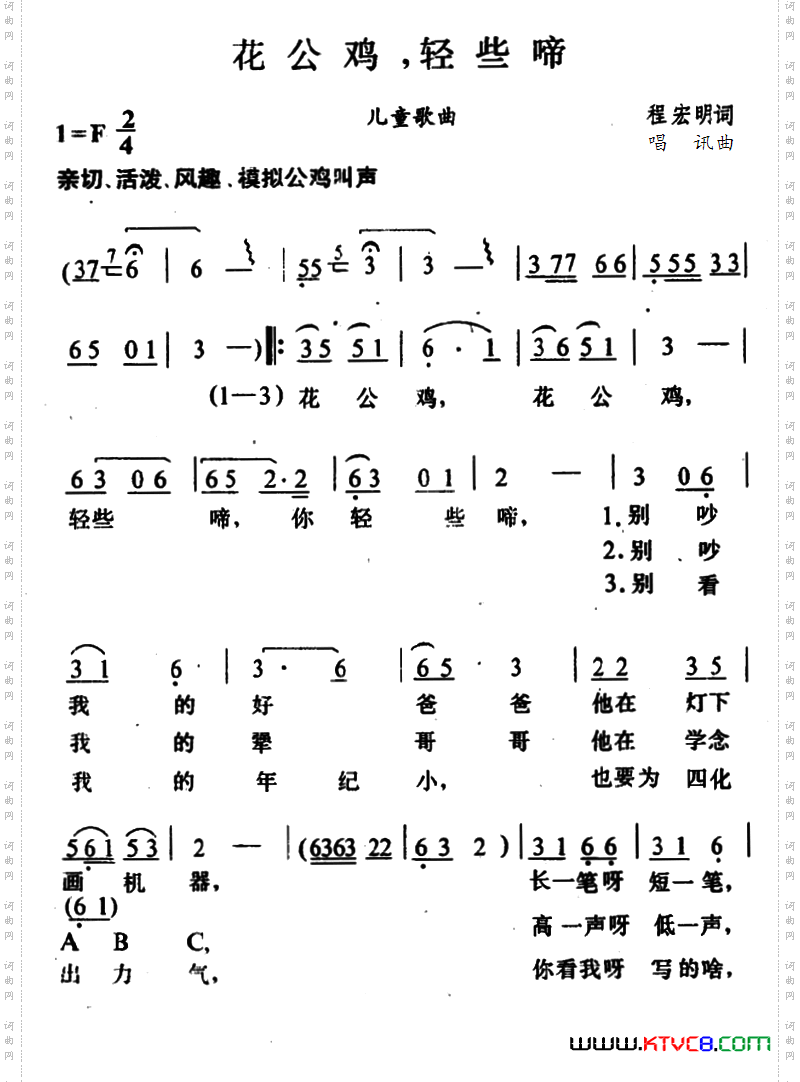 花公鸡,轻些啼
1=F 2/4
儿童歌曲
程宏明词
唱 讯曲
亲切、活泼、风趣、模拟公鸡叫声
(37 7 6 | 6 — | 55 5 3 | 3 — | 3 77 66 | 5 55 33 |
65 01 | 3 —) ‖: 35 51 | 6 · 1 | 36 51 | 3 — |
(1—3) 花 公 鸡, 花 公 鸡,
63 06 | 65 2·2 | 63 01 | 2 — | 3 06 |
轻些 啼, 你 轻 些 啼, 1.别 吵
2.别 吵
3.别 看
31 6 | 3 · 6 | 65 3 | 22 35 |
我 的 好 爸 爸 他在 灯下
我 的 犟 哥 哥 他在 学念
我 的 年 纪 小, 也要为 四化
561 53 | 2 — | (6363 22 | 63 2) | 31 66 | 31 6 |
画 机 器, 长一笔呀 短一笔,
(61)
高一声呀 低一声,
A B C,
出 力 气, 你看我呀 写的啥,
www.KTVC8.com
词曲网